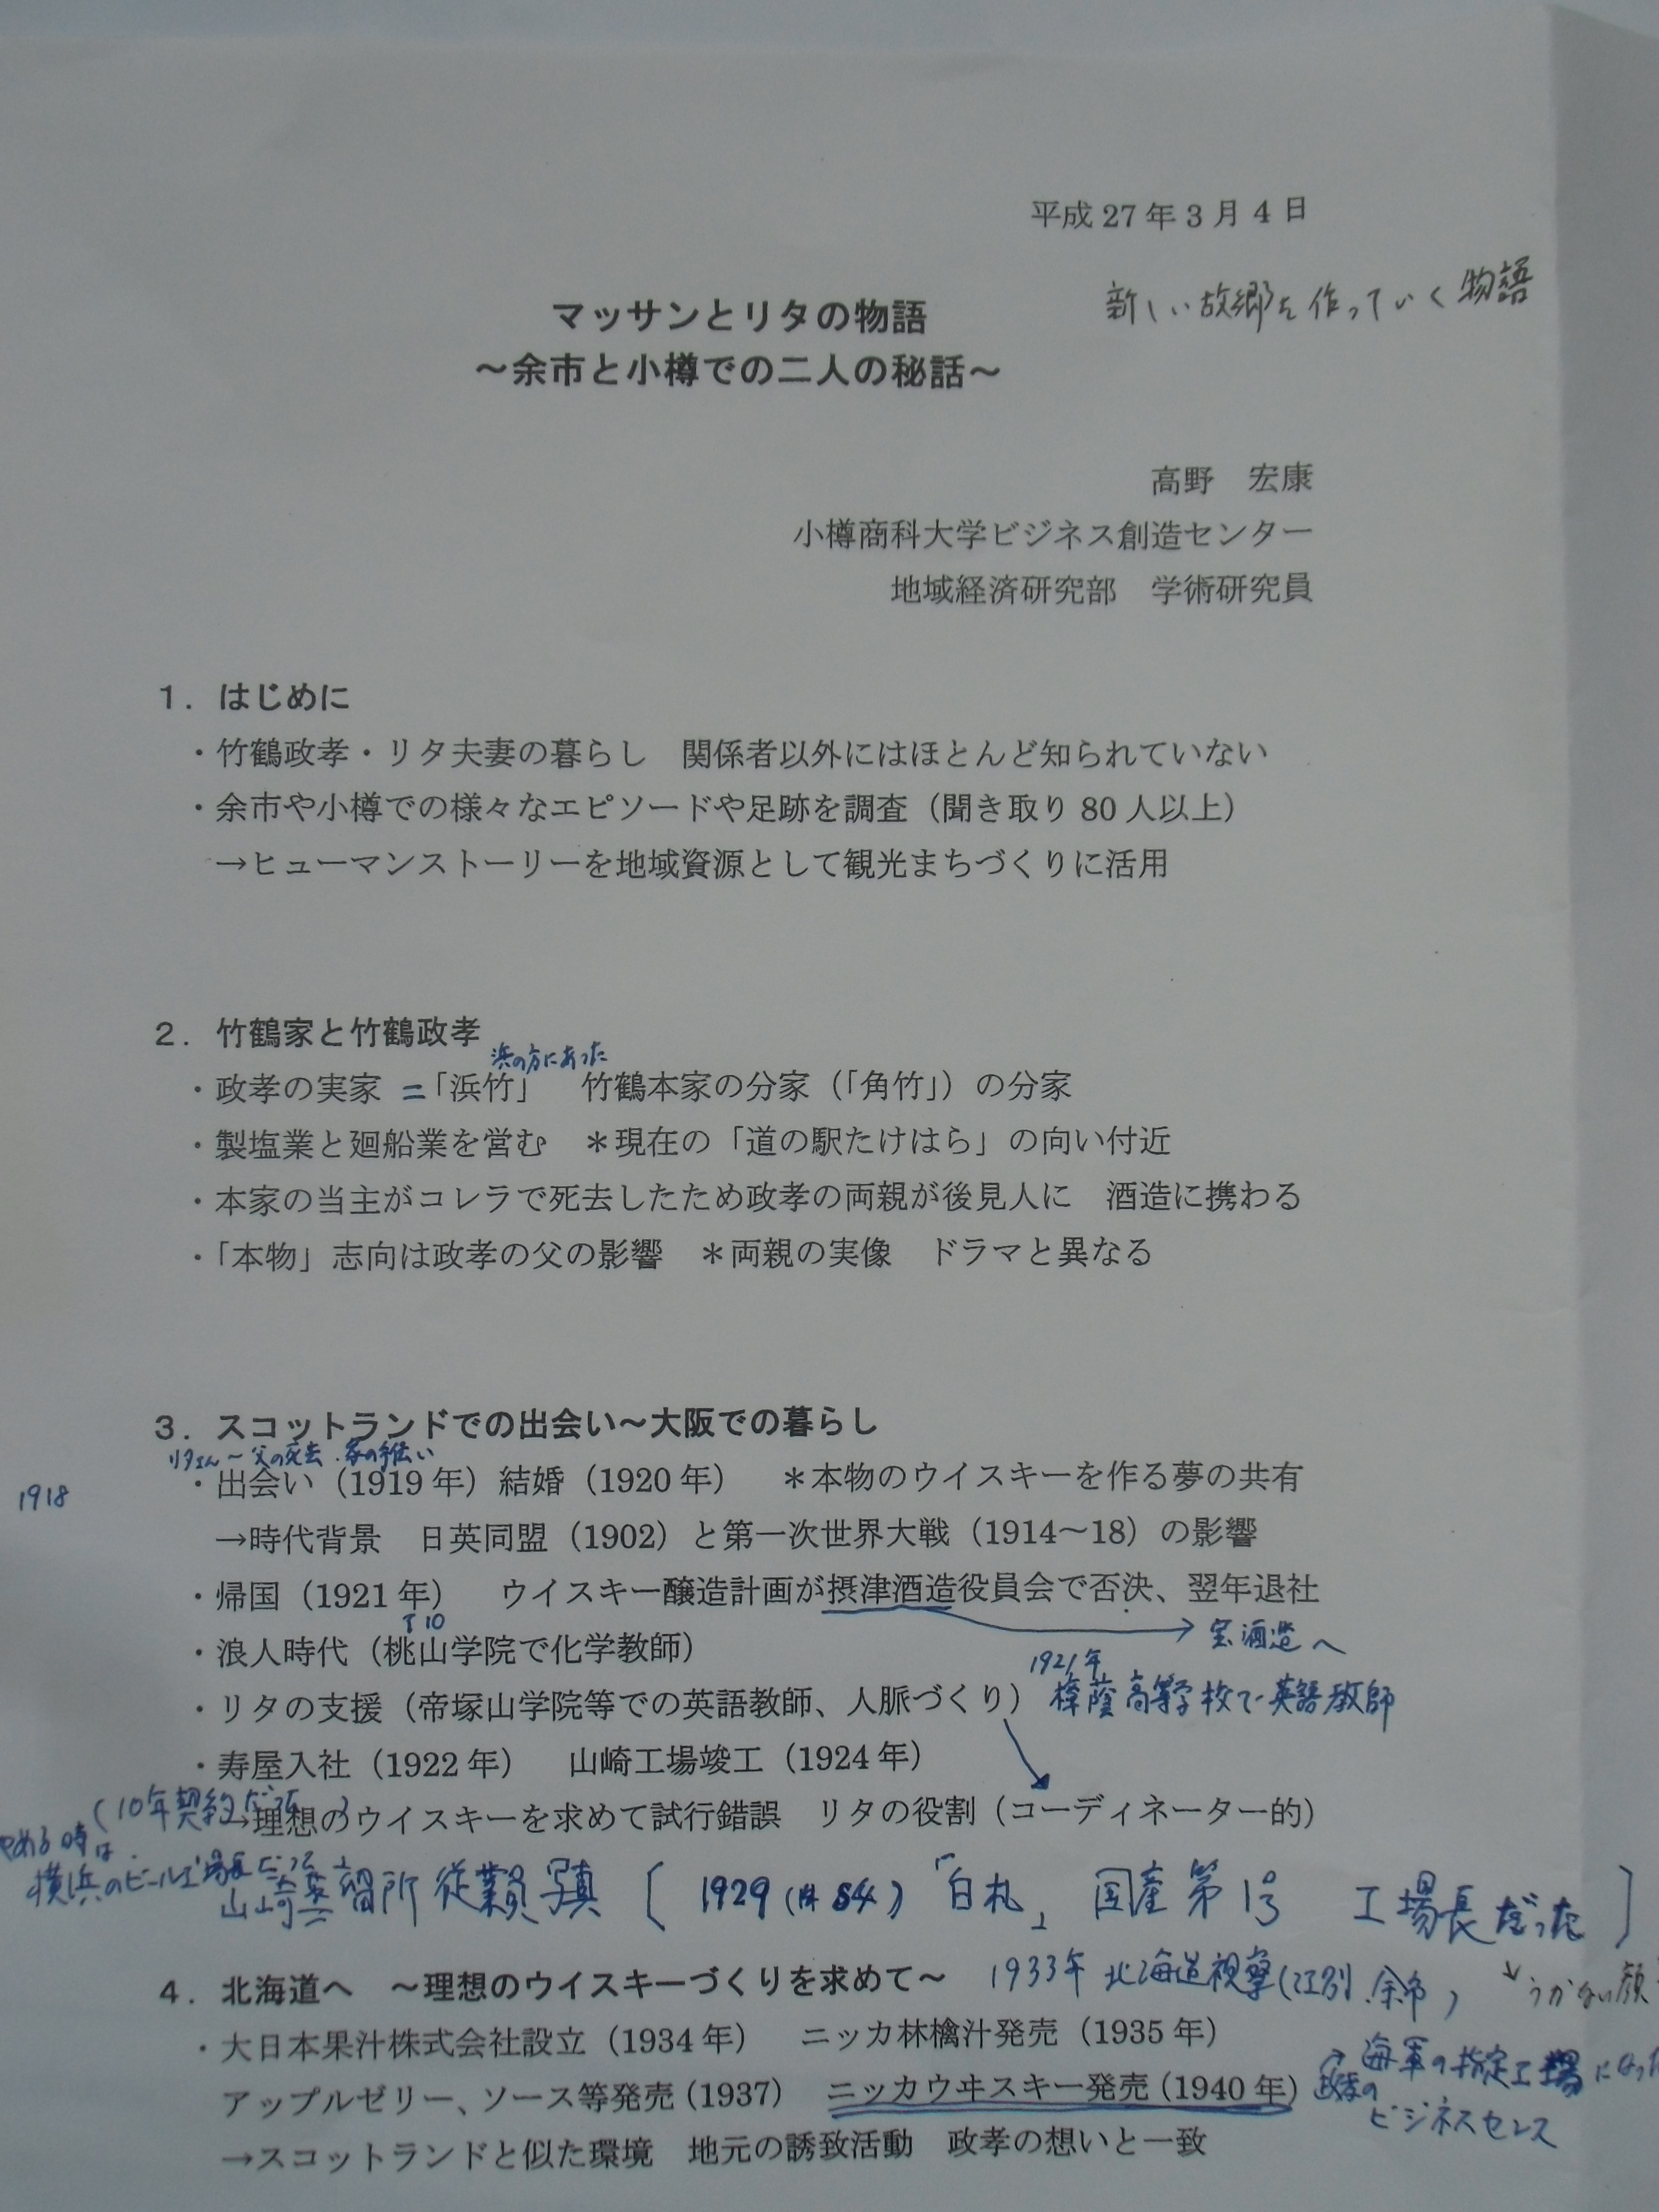 平成 27 年 3 月 4 日
新しい故郷を作っていく物語
マッサンとリタの物語
～余市と小樽での二人の秘話～
高野　宏康
小樽商科大学ビジネス創造センター
地域経済研究部　学術研究員
1．はじめに
・竹鶴政孝・リタ夫妻の暮らし　関係者以外にはほとんど知られていない
・余市や小樽での様々なエピソードや足跡を調査（聞き取り 80 人以上）
→ヒューマンストーリーを地域資源として観光まちづくりに活用
2．竹鶴家と竹鶴政孝
浜の方にあった
・政孝の実家 ＝「浜竹」　竹鶴本家の分家（「角竹」）の分家
・製塩業と廻船業を営む　＊現在の「道の駅たけはら」の向い付近
・本家の当主がコレラで死去したため政孝の両親が後見人に　酒造に携わる
・「本物」志向は政孝の父の影響　＊両親の実像　ドラマと異なる
3．スコットランドでの出会い～大阪での暮らし
リタさん～父の死去、家の手伝い
1918
・出会い（1919 年）結婚（1920 年）　＊本物のウイスキーを作る夢の共有
→時代背景　日英同盟（1902）と第一次世界大戦（1914～18）の影響
・帰国（1921 年）　ウイスキー醸造計画が摂津酒造役員会で否決、翌年退社
T10
→ 宝酒造へ
・浪人時代（桃山学院で化学教師）
1921年
・リタの支援（帝塚山学院等での英語教師、人脈づくり） 樟蔭高等学校で英語教師
・寿屋入社（1922 年）　山崎工場竣工（1924 年）
（10年契約だった）
→理想のウイスキーを求めて試行錯誤　リタの役割（コーディネーター的）
やめる時は
横浜のビール工場長だった
山崎蒸留所従業員写真 [ 1929 (S4)「白札」国産第1号　工場長だった ]
4．北海道へ　～理想のウイスキーづくりを求めて～ 1933年 北海道視察（江別、余市）
↓うかない顔
・大日本果汁株式会社設立（1934 年）　ニッカ林檎汁発売（1935 年）
→海軍の指定工場になった
アップルゼリー、ソース等発売（1937）　ニッカウヰスキー発売（1940 年）
政孝の
ビジネスセンス
→スコットランドと似た環境　地元の誘致活動　政孝の想いと一致